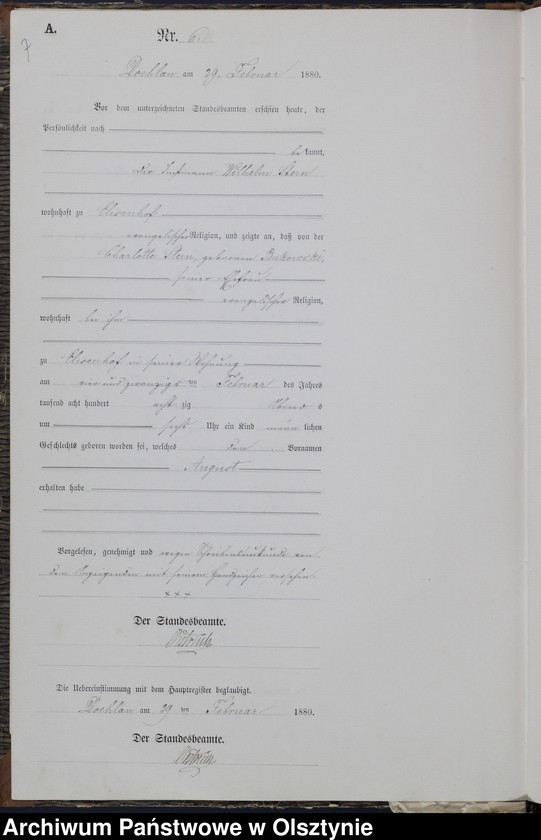 A.
7
Nr. 6.
am 29. Februar 1880.
Vor dem unterzeichneten Standesbeamten erschien heute, der
Persönlichkeit nach
be kannt,
der Wilhelm Stern
wohnhaft zu Elisenhof
evangelischer Religion, und zeigte an, daß von der
Charlotte Stern, geborenen
seiner Ehefrau
evangelischer Religion,
wohnhaft bei ihm
zu Elisenhof in seiner Wohnung
am vier und zwanzigs ten Februar des Jahres
tausend acht hundert acht zig Abends
um sechs Uhr ein Kind männ lichen
Geschlechts geboren worden sei, welches den Vornamen
August
erhalten habe
Vorgelesen, genehmigt und wegen Schreibensunkunde von
dem Anzeigenden mit seinem Handzeichen versehen.
x x x
Der Standesbeamte.
Die Uebereinstimmung mit dem Hauptregister beglaubigt.
am 29 ten Februar 1880.
Der Standesbeamte.
Archiwum Państwowe w Olsztynie